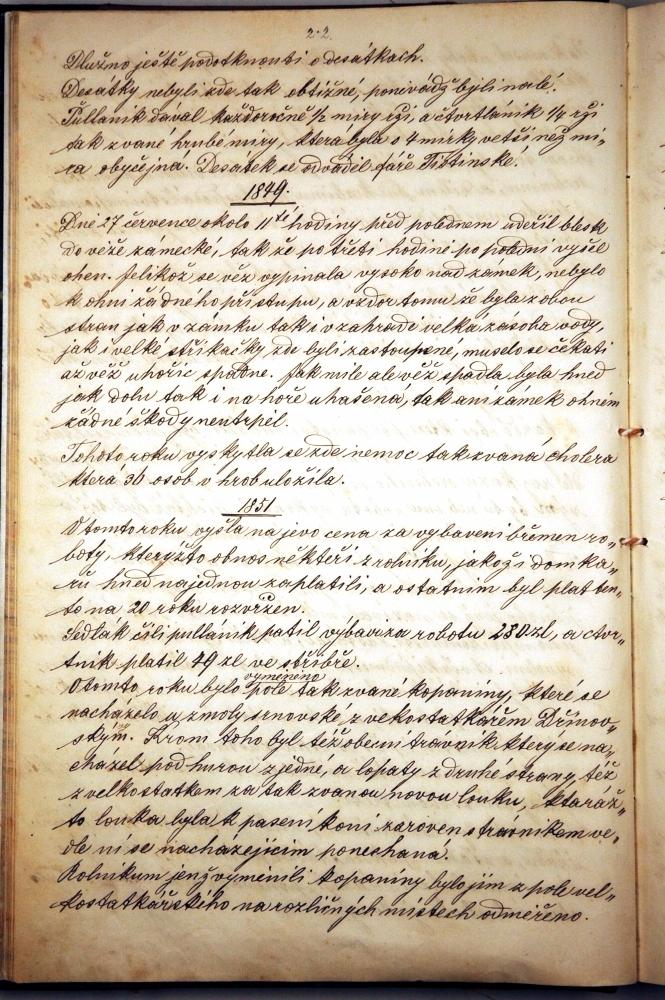 22.
Dlužno ještě podotknouti o desátkach.
Desátky nebyli zde tak obtižné, ponivádž byli malé.
Pullanik dával každoročně ½ míry rži, a čtvrtlánik ¼ rži
tak zvané hrubé míry, která byla o 4 mírky vetší než mí„
ra obyčejná. Desátek se odváděl fáře Tištinske.
1849.
Dne 27 července okolo 11té hodiny před polednem udeřil blesk
do veže zámecké, tak že po třetí hodině po poledni vyšel
ohen. Jelikož se věž vypinala vysoko nad zamek, nebylo
k ohni žádného přístupu, a vzdor tomu že byla z obou
stran jak v zámku tak i v zahradě velká zasoba vody,
jak i velké střikačky zde byli zastoupené, muselo se čekati
až věž uhořic spadne. Jak mile ale věž spadla byla hned
jak dolu tak i na hoře uhašená, tak ani zámek ohněm
žádné škody neutrpěl.
Tohoto roku vyskytla se zde nemoc tak zvaná cholera
která 36 osob v hrob uložila.
1851
V tomto roku vyšla na jevo cena za vybaveni břemen ro„
boty, kterýžto obnos někteří z rolniku, jakož i domka„
řu hned najednou zaplatili, a ostatnim byl plat ten„
to na 20 roku rozvržen.
Sedlák čili pullánik patil výbavi za robotu 280 zl, a čtvr„
tnik platil 49 zl ve střibře.
V tomto roku bylo vyměněno pole tak zvané kopaniny, které se
nacházelo u zmoly srnovské z vekostatkářem Dřínov„
ským. Krom toho byl též obecní trávnik který se na„
cházel pod hurou z jedné, a lopaty z druhé strany, též
z velkostatkem za tak zvanou novou louku, kteráž„
to louka byla k paseni koni zaroven s trávnikem ve„
dle ní se nacházejícím ponechaná.
Rolnikum jenž vyměnili kopaniny bylo jim z pole vel„
kostatkářského na rozličných mistech odměřeno.